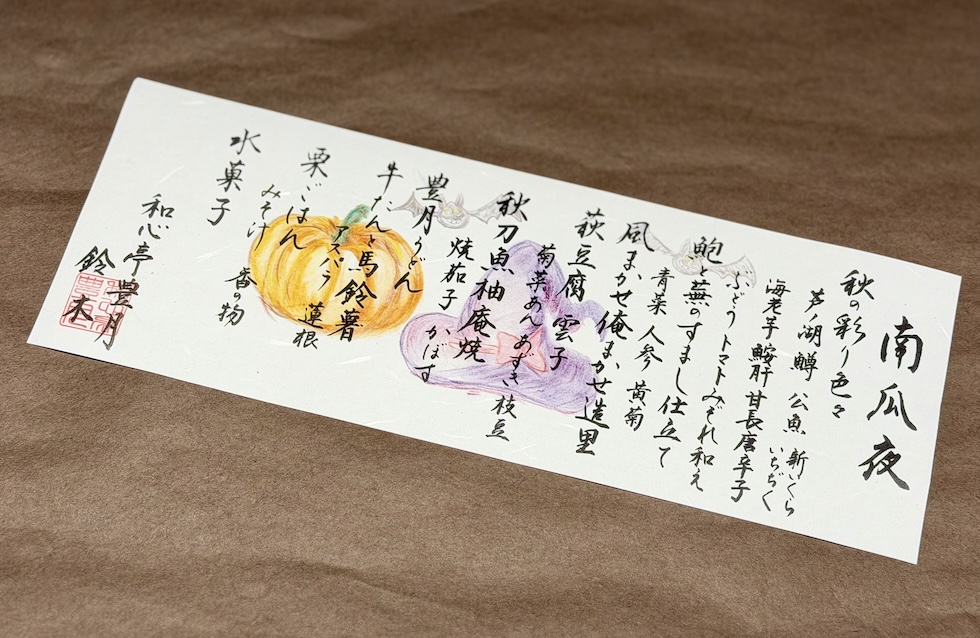 南瓜夜
秋の彩り色々
芦ノ湖鱒 公魚 新いくら
海老芋 鮟肝 甘長唐辛子 いちぢく
ぶどうトマトみぞれ和え
鮑と蕪のすまし仕立て
青菜 人参 黄菊
風まかせ俺まかせ造里
萩豆腐 雲子
菊菜あん あずき 枝豆
秋刀魚柚庵焼
焼茄子 かぼす
豊月うどん
牛たんと馬鈴薯
アスパラ 蓮根
栗ごはん
みそ汁 香の物
水菓子
和心亭豊月
鈴木